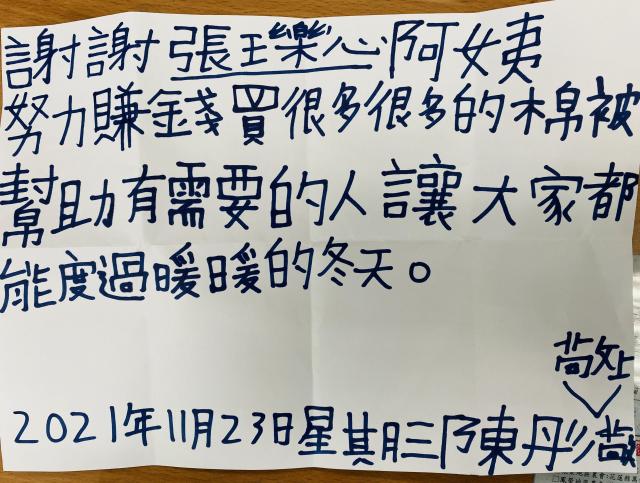 謝謝張王樂心阿姨
努力賺金錢買很多很多的棉被
幫助有需要的人讓大家都
能度過暖暖的冬天。
敬上
2021年11月23日星其月三陳彤